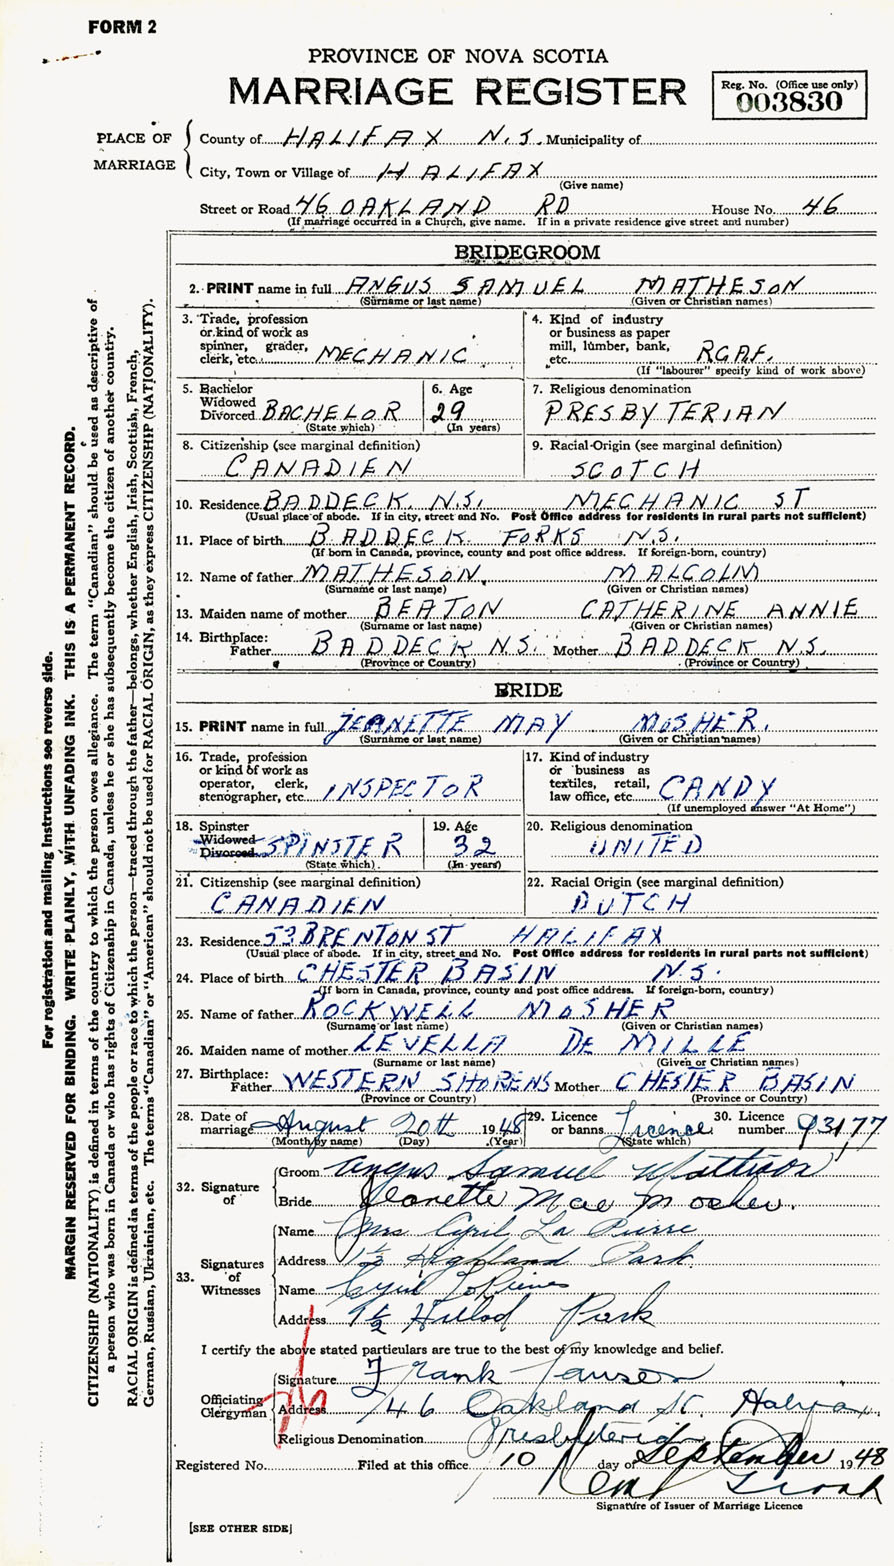 FORM 2
PROVINCE OF NOVA SCOTIA
MARRIAGE REGISTER
Reg. No. (Office use only)
003830
PLACE OF MARRIAGE
County of HALIFAX N.S. Municipality of
City, Town or Village of HALIFAX
(Give name)
Street or Road 46 OAKLAND RD House No. 46
(If marriage occurred in a Church, give name. If in a private residence give street and number)
BRIDEGROOM
2. PRINT name in full ANGUS SAMUEL MATHESON
(Surname or last name) (Given or Christian names)
3. Trade, profession
or kind of work as
spinner, grader,
clerk, etc. MECHANIC
4. Kind of industry
or business as paper
mill, lumber, bank,
etc. RCAF.
(If "labourer" specify kind of work above)
5. Bachelor
Widowed
Divorced BACHELOR
(State which)
6. Age
29
(In years)
7. Religious denomination
PRESBYTERIAN
8. Citizenship (see marginal definition)
CANADIEN
9. Racial Origin (see marginal definition)
SCOTCH
10. Residence BADDECK N.S. MECHANIC ST
(Usual place of abode. If in city, street and No. Post Office address for residents in rural parts not sufficient)
11. Place of birth BADDECK FORKS N.S.
(If born in Canada, province, county and post office address. If foreign-born, country)
12. Name of father MATHESON, MALCOLM
(Surname or last name) (Given or Christian names)
13. Maiden name of mother BEATON CATHERINE ANNIE
(Surname or last name) (Given or Christian names)
14. Birthplace:
Father BADDECK N.S. Mother BADDECK N.S.
(Province or Country) (Province or Country)
BRIDE
15. PRINT name in full JEANETTE MAY MOSHER.
(Surname or last name) (Given or Christian names)
16. Trade, profession
or kind of work as
operator, clerk,
stenographer, etc. INSPECTOR
17. Kind of industry
or business as
textiles, retail,
law office, etc. CANDY
(If unemployed answer "At Home")
18. Spinster
Widowed
Divorced SPINSTER
(State which)
19. Age
32
(In years)
20. Religious denomination
UNITED
21. Citizenship (see marginal definition)
CANADIEN
22. Racial Origin (see marginal definition)
DUTCH
23. Residence 53 BRENTON ST HALIFAX
(Usual place of abode. If in city, street and No. Post Office address for residents in rural parts not sufficient)
24. Place of birth CHESTER BASIN N.S.
(If born in Canada, province, county and post office address. If foreign-born, country)
25. Name of father ROCKWELL MOSHER
(Surname or last name) (Given or Christian names)
26. Maiden name of mother LEVELLA DE MILLE
(Surname or last name) (Given or Christian names)
27. Birthplace:
Father WESTERN SHORE NS Mother CHESTER BASIN
(Province or Country) (Province or Country)
28. Date of
marriage August 20th 1948
(Month by name) (Day) (Year)
29. Licence
or banns Licence
(State which)
30. Licence
number 93177
32. Signature of
Groom Angus Samuel Matheson
Bride Jeanette Mae Mosher.
33. Signatures of Witnesses
Name Mrs Cyril La Pierre
Address 1½ Highland Park
Name Cyril LaPierre
Address 1½ Park
I certify the above stated particulars are true to the best of my knowledge and belief.
Officiating Clergyman
Signature Frank Lawson
Address 46 Oakland St. Halifax
Religious Denomination Presbyterian
Registered No. Filed at this office 10 day of September 1948
Signature of Issuer of Marriage Licence
[SEE OTHER SIDE]
For registration and mailing instructions see reverse side.
MARGIN RESERVED FOR BINDING. WRITE PLAINLY, WITH UNFADING INK. THIS IS A PERMANENT RECORD.
CITIZENSHIP (NATIONALITY) is defined in terms of the country to which the person owes allegiance. The term "Canadian" should be used as descriptive of
a person who was born in Canada or who has rights of Citizenship in Canada, unless he or she has subsequently become the citizen of another country.
RACIAL ORIGIN is defined in terms of the people or race to which the person—traced through the father—belongs, whether English, Irish, Scottish, French,
German, Russian, Ukrainian, etc. The terms "Canadian" or "American" should not be used for RACIAL ORIGIN, as they express CITIZENSHIP (NATIONALITY).